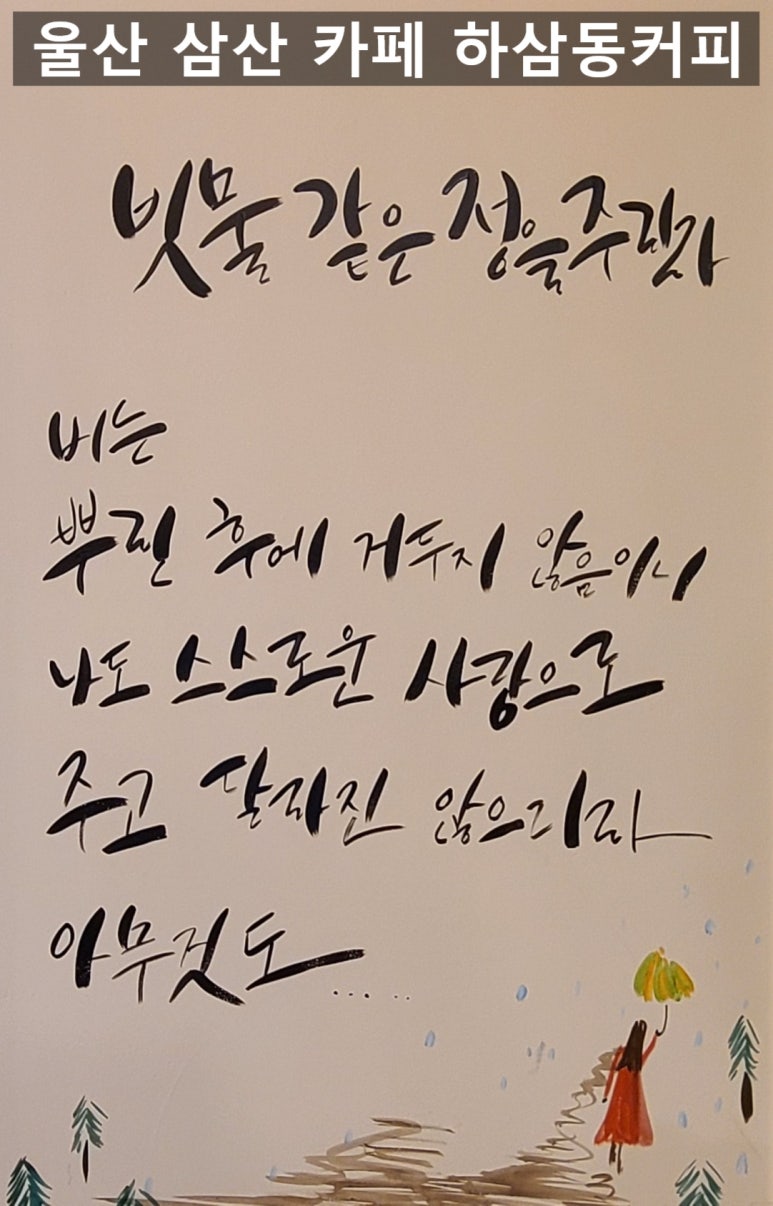 울산 삼산 카페 하삼동커피
빗물 같은 정을 주리라
비는
뿌린 후에 거두지 않음이니
나도 스스로운 사랑으로
주고 달라진 않으리라
아무것도......